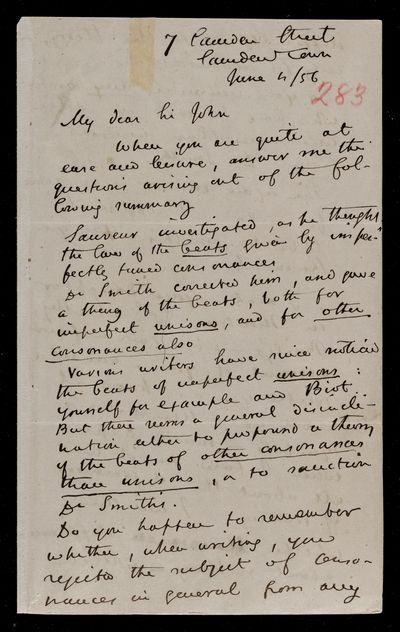 7 Camden Street
Camden Town
June 4/56
283
My dear Sir John
When you are quite at
ease and leisure, answer me the
questions arising out of the fol-
lowing summary
Sauveur investigated, as he thought
the law of the beats given by imper-
fectly tuned consonances
Dr Smith corrected him, and gave
a theory of the beats, both for
imperfect unisons, and for other
consonances also
Various writers have since noticed
the beats of imperfect unisons :
yourself for example and Biot.
But there seems a general disincli-
nation either to propound a theory
of the beats of other consonances
than unisons, or to sanction
Dr Smith's.
Do you happen to remember
whether, when writing, you
rejected the subject of conso-
nances in general from any